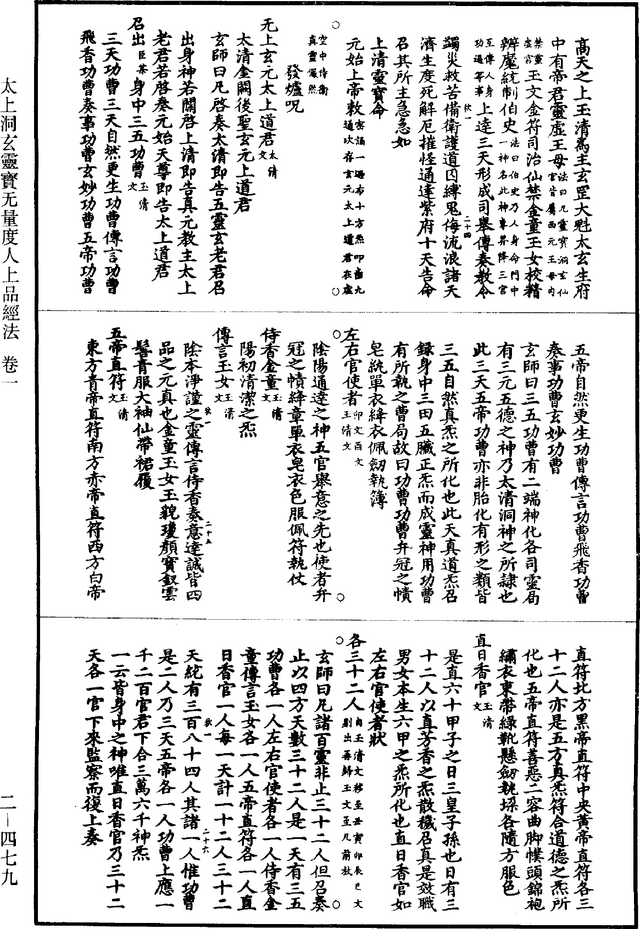 高天之上玉清爲主玄罡大魁太玄生府
中有帝君靈虛王母法曰凡靈寶洞玄仙官皆屬西元王母內
禁靈官王文金符司治仙禁金童玉女校精
辨魔統制伯史法曰伯史乃人身命門中一神名此神東昇降三官
至傳身功過等事上達三天形成司舉傳奏教令
蠲災救苦備衛護道因縛鬼侮流浪諸天
濟生度死解厄摧怪通達紫府十天告命
召其所主急急如
上清靈寶命
元始上帝敕
空中侍衛真靈儼然
發爐呪
无上玄元太上道君太清文
太清金闕後聖玄元上道君
玄師曰凡啓奏太清即告五靈玄老君召
出身神若關啓上清即告真元教主太上
老君若啓奏元始天尊即告太上道君
召出臣某身中三五功曹玉清文
三天功曹三天自然更生功曹傳言功曹
飛香功曹奏事功曹玄妙功曹五帝功曹
五帝自然更生功曹傳言功曹飛香功曹
奏事功曹玄妙功曹
玄師曰三五功曹有二端神化各司靈局
有三元五德之神乃太清洞神之所隷也
此三天五帝功曹亦非胎化有形之類皆
三五自然真炁之所化也此天真道炁召
錄身中三田五臟正炁而成靈神用功曹
有所執之曹局故曰功曹功曹弁冠之幘
皂統單衣絳衣佩劒執簿
左右官使者卯文酉文玉清文
陰陽通達之神五官舉意之先也使者弁
冠之幘絳章單衣皂衣色服佩符執仗
侍香金童玉清文
陽初清潔之炁
傳言玉女玉清文
陰本淨謐之靈傳言侍香奏意達誠皆四
品之元真也金童玉女玉貌瓊顏寶釵雲
髻青服大袖仙帶裙履
五帝直符玉清文
東方青帝直符南方赤帝直符西方白帝
直符北方黑帝直符中央黃帝直符各三
十二人亦是五方真炁符合道德之炁所
化也五帝直符善惡二容曲脚幞頭錦袍
繡衣束帶綠靴懸劒執㮶各隨方服色
直日香官玉清文
是直六十甲子之日三皇子孫也日有三
十二人以直芳香之炁散穢召真是效職
男女本生六甲之炁所化也直日香官如
左右官使者狀
各三十二人
玄師曰凡諸百靈非止三十二人但召奏
止以四方天數三十二人是一天有三五
功曹各一人左右官使者各一人侍香金
童傳言玉女各一人五帝直符各一人直
日香官一人每一天計一十二人三十二
天統有三百八十四人其諸一人惟功曹
是二人乃三天五帝各一人功曹上應一
千二百官君下合三萬六千神炁
一云皆身中之神唯直日香官乃三十二
天各一官下來監察而復上奏
太上洞玄靈寶无量度人上品經法 卷一
二–四七九